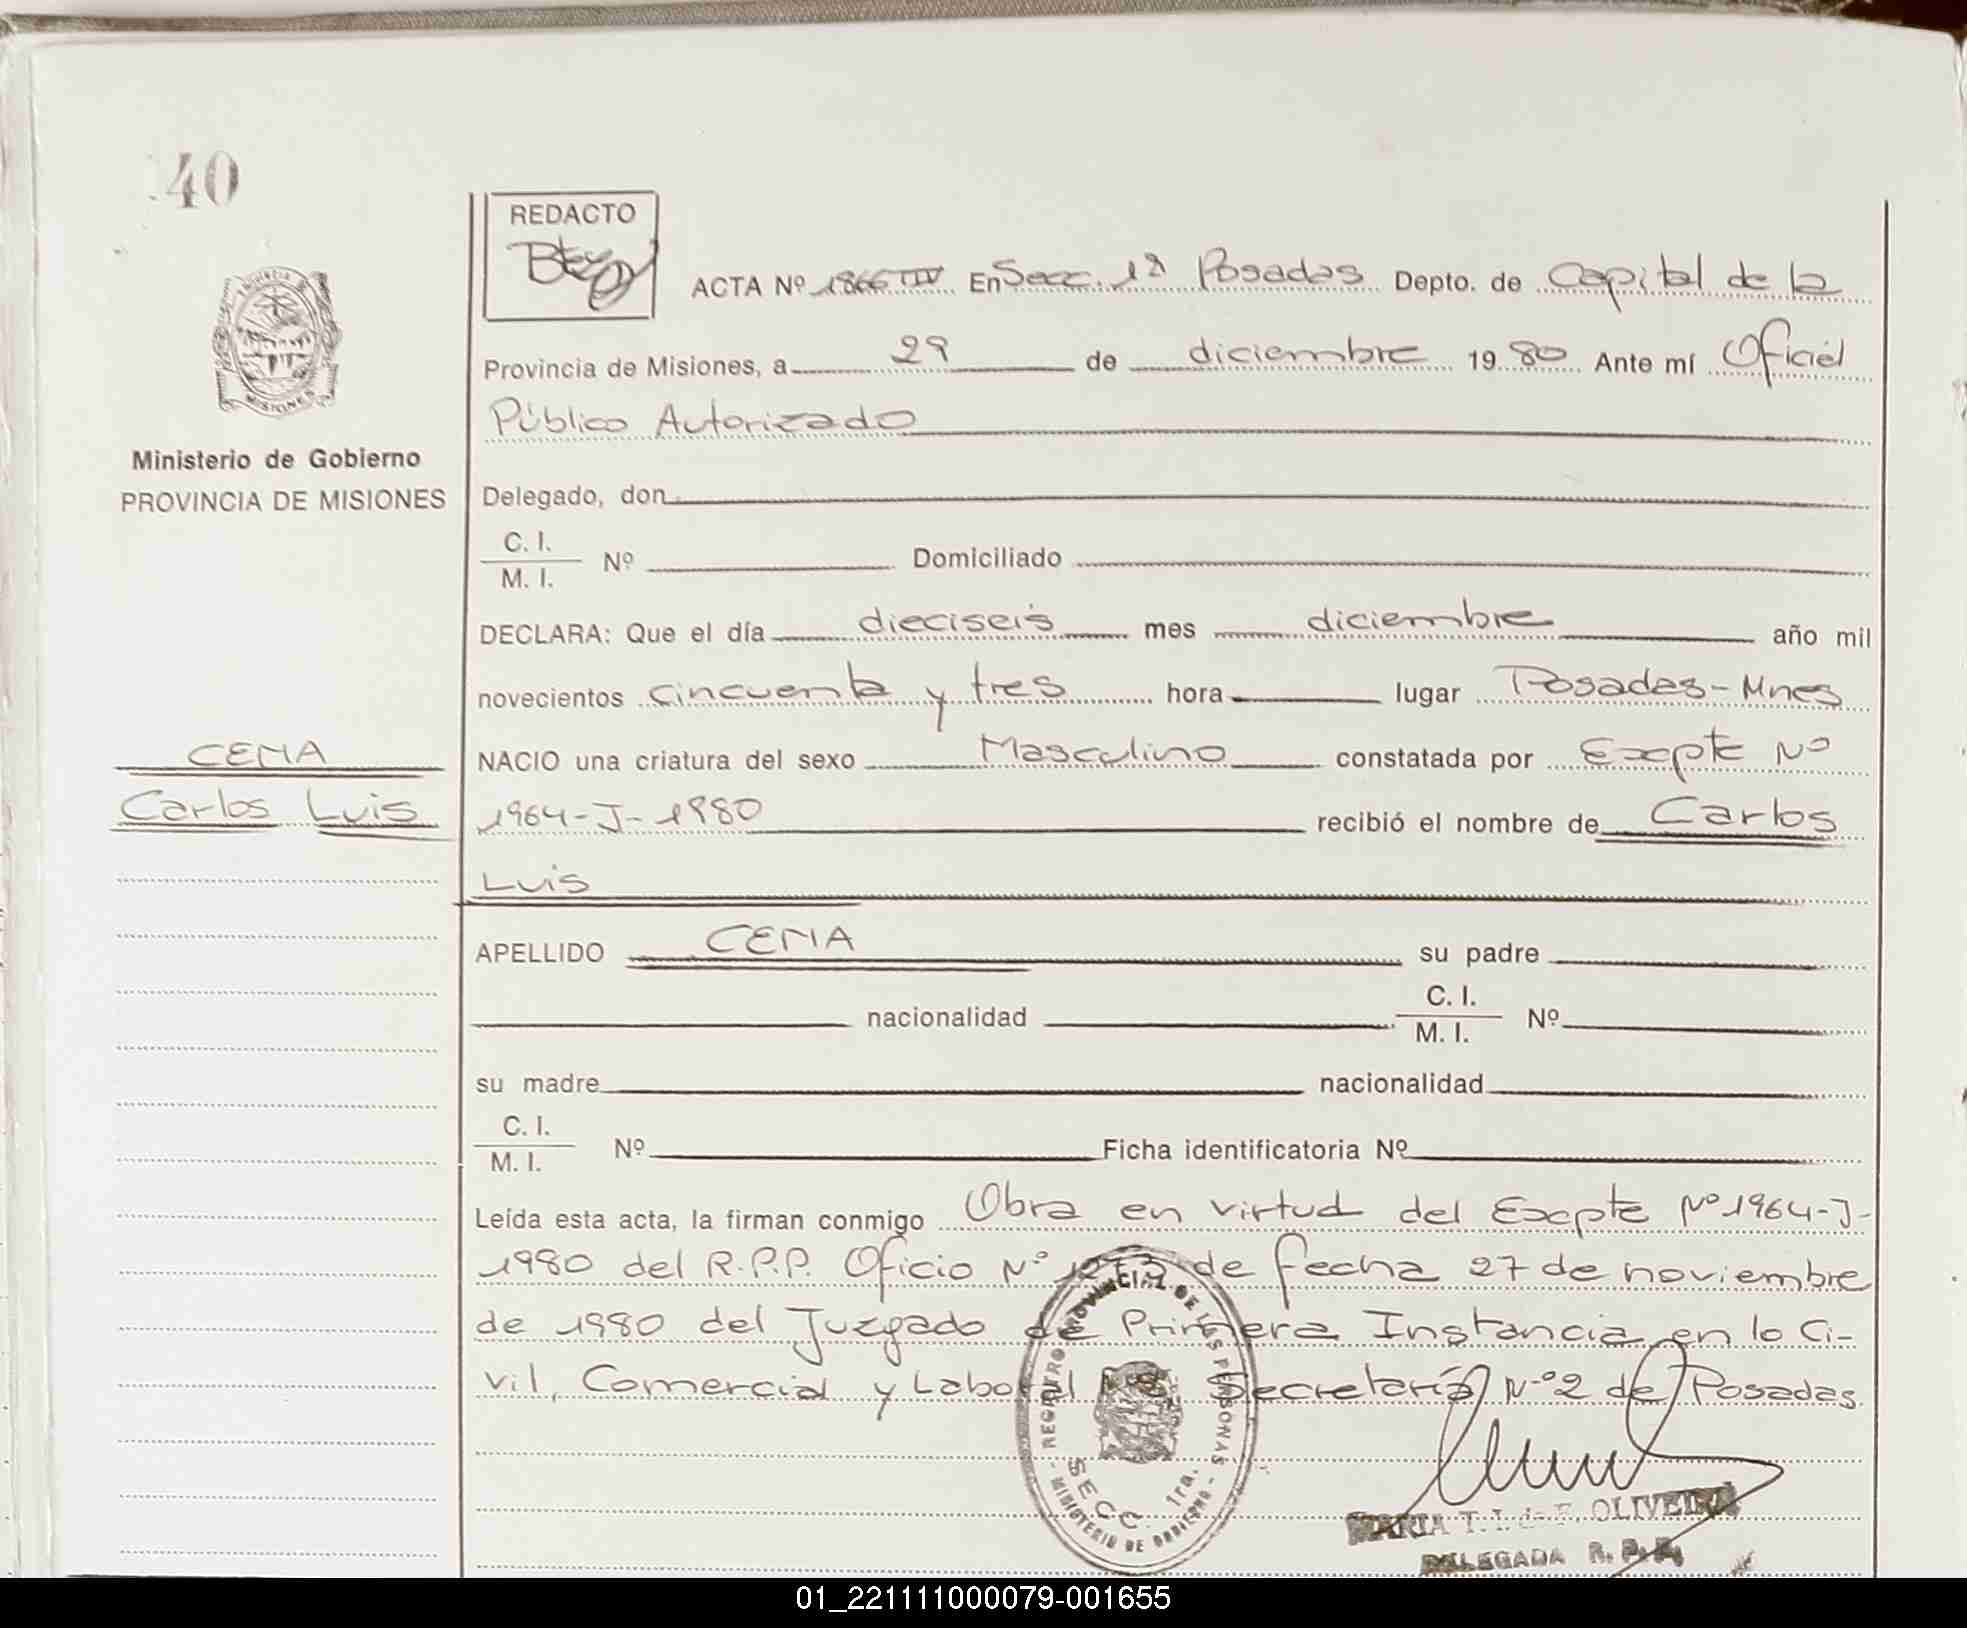 40
REDACTO
ACTA Nº 1866 IV En Secc. 1ª Posadas Depto. de Capital de la
Provincia de Misiones, a 29 de diciembre 1980 Ante mí Oficial
Público Autorizado
Ministerio de Gobierno
PROVINCIA DE MISIONES
Delegado, don
C. I.
M. I. Nº Domiciliado
DECLARA: Que el día dieciseis mes diciembre año mil
novecientos cincuenta y tres hora lugar Posadas-Mnes
CEMA
NACIO una criatura del sexo Masculino constatada por Expte Nº
Carlos Luis
1964-J-1980 recibió el nombre de Carlos
Luis
APELLIDO CEMA su padre
nacionalidad C. I.
M. I. Nº
su madre nacionalidad
C. I.
M. I. Nº Ficha identificatoria Nº
Leída esta acta, la firman conmigo Obra en virtud del Expte Nº 1964-J-
1980 del R.P.P. Oficio Nº de fecha 27 de noviembre
de 1980 del Juzgado de Primera Instancia en lo Ci-
vil, Comercial y Laboral Secretaría Nº 2 de Posadas
REGISTRO PROVINCIAL DE LAS PERSONAS
SECC. 1ra.
MINISTERIO DE GOBIERNO
MARIA T. I. de F. OLIVEIRA
DELEGADA R. P. P.
01_221111000079-001655